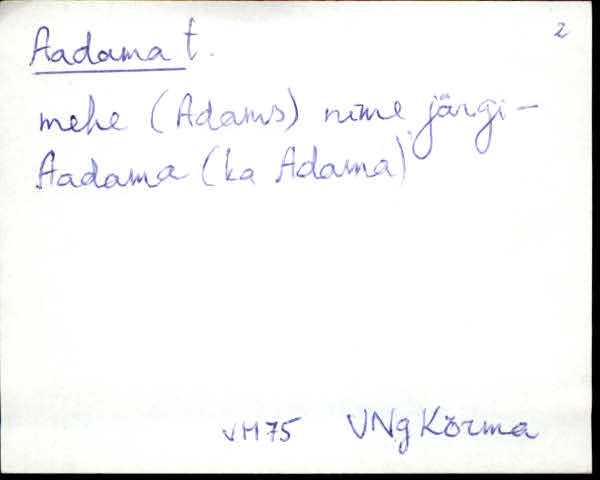 2
Aadama t.
mehe (Adams) nime järgi –
Aadama (ka Adama)
VM75 VNg Kõrma